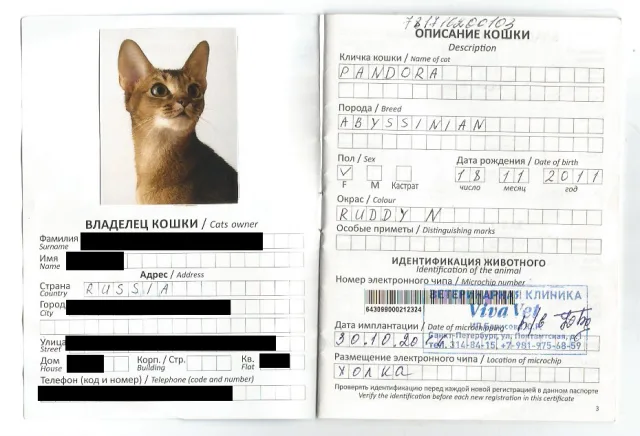 ВЛАДЕЛЕЦ КОШКИ / Cats owner
Фамилия
Surname
Имя
Name
Адрес / Address
Страна
Country
RUSSIA
Город
City
Улица
Street
Дом
House
Корп. / Стр.
Building
Кв.
Flat
Телефон (код и номер) / Telephone (code and number)
ОПИСАНИЕ КОШКИ
Description
Кличка кошки / Name of cat
PANDORA
Порода / Breed
ABYSSINIAN
Пол / Sex
F M Кастрат
Дата рождения / Date of birth
18 11 2011
число месяц год
Окрас / Colour
RUDDY N
Особые приметы / Distinguishing marks
ИДЕНТИФИКАЦИЯ ЖИВОТНОГО
Identification of the animal
Номер электронного чипа / Microchip number
643099000212324
ВЕТЕРИНАРНАЯ КЛИНИКА
Viva Vet
Дата имплантации / Date of microchipping
Санкт-Петербург, ул.
30.10.20
тел. 314-84-15, +7-981-975-68-59
Размещение электронного чипа / Location of microchip
ХОЛКА
Проверять идентификацию перед каждой новой регистрацией в данном паспорте
Verify the identification before each new registration in this certificate
3